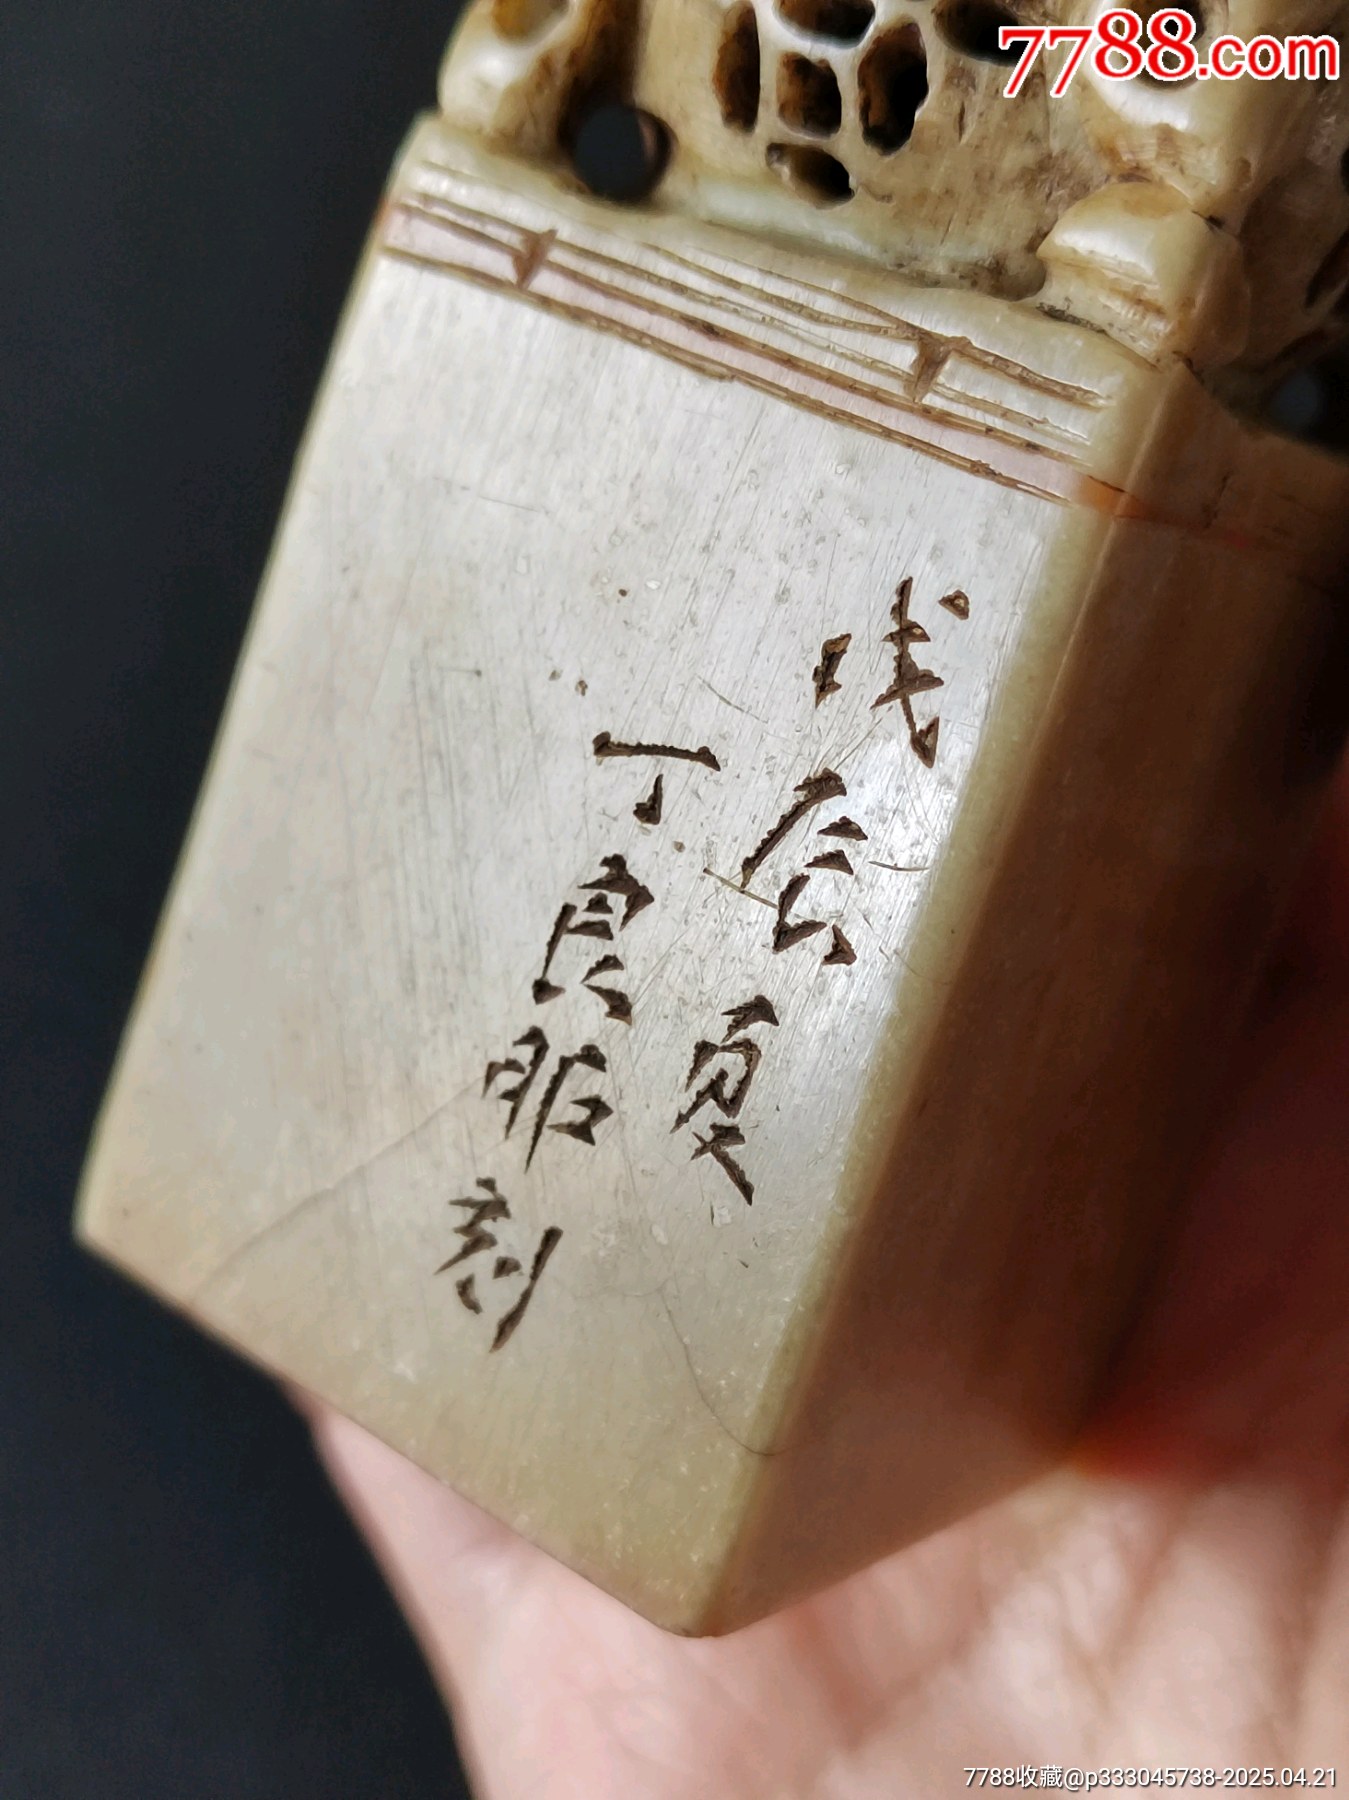 7788.com
戊辰夏
丁良卯刻
7788收藏@p333045738-2025.04.21